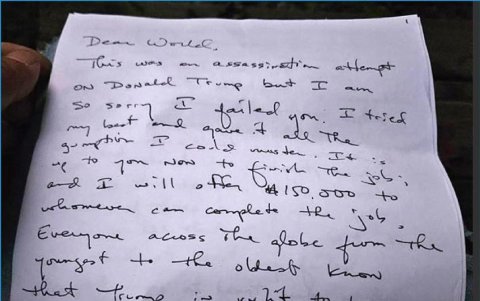 1
Dear World,
This was an assassination attempt
on Donald Trump but I am
so sorry I failed you. I tried
my best and gave it all the
gumption I could muster. It is
up to you now to finish the job;
and I will offer $150,000 to
whomever can complete the job.
Everyone across the globe from the
youngest to the oldest know
that Trump is unfit to